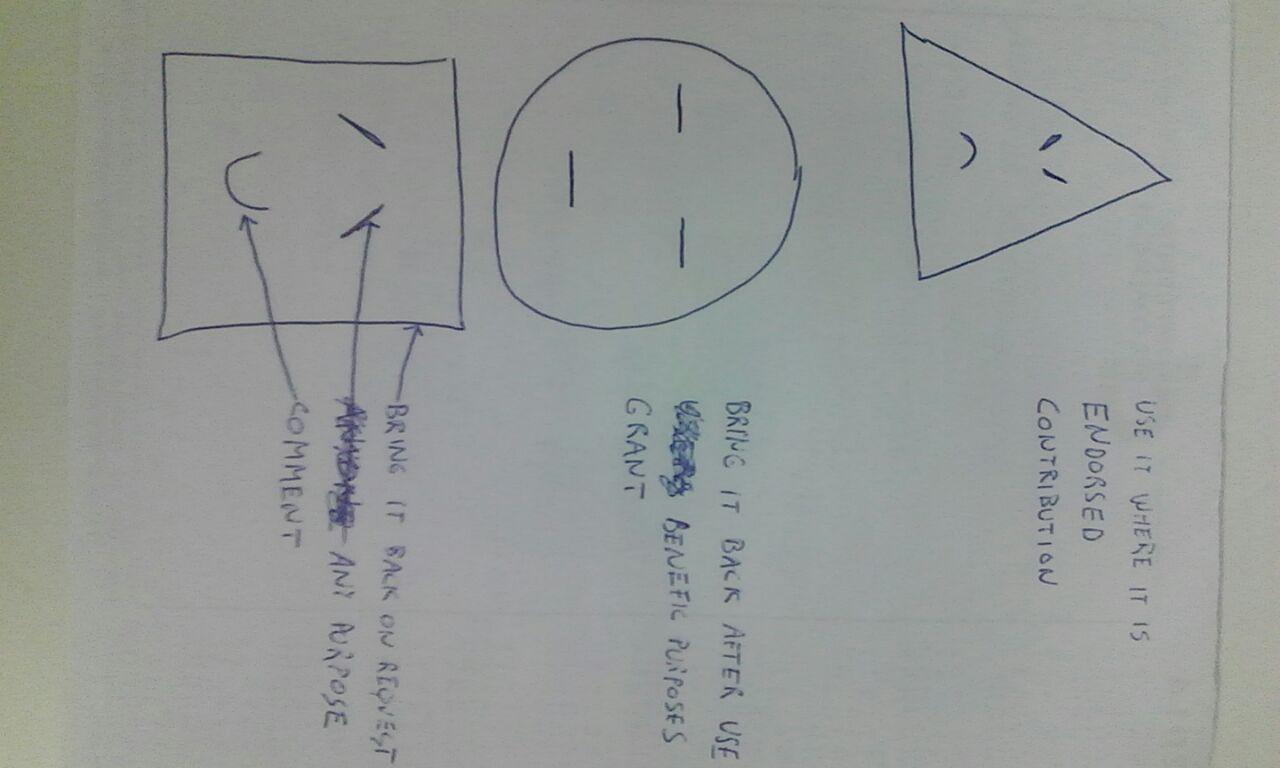 USE IT WHERE IT IS
ENDORSED
CONTRIBUTION
BRING IT BACK AFTER USE
BENEFIC PURPOSES
GRANT
BRING IT BACK ON REQUEST
ANY PURPOSE
COMMENT